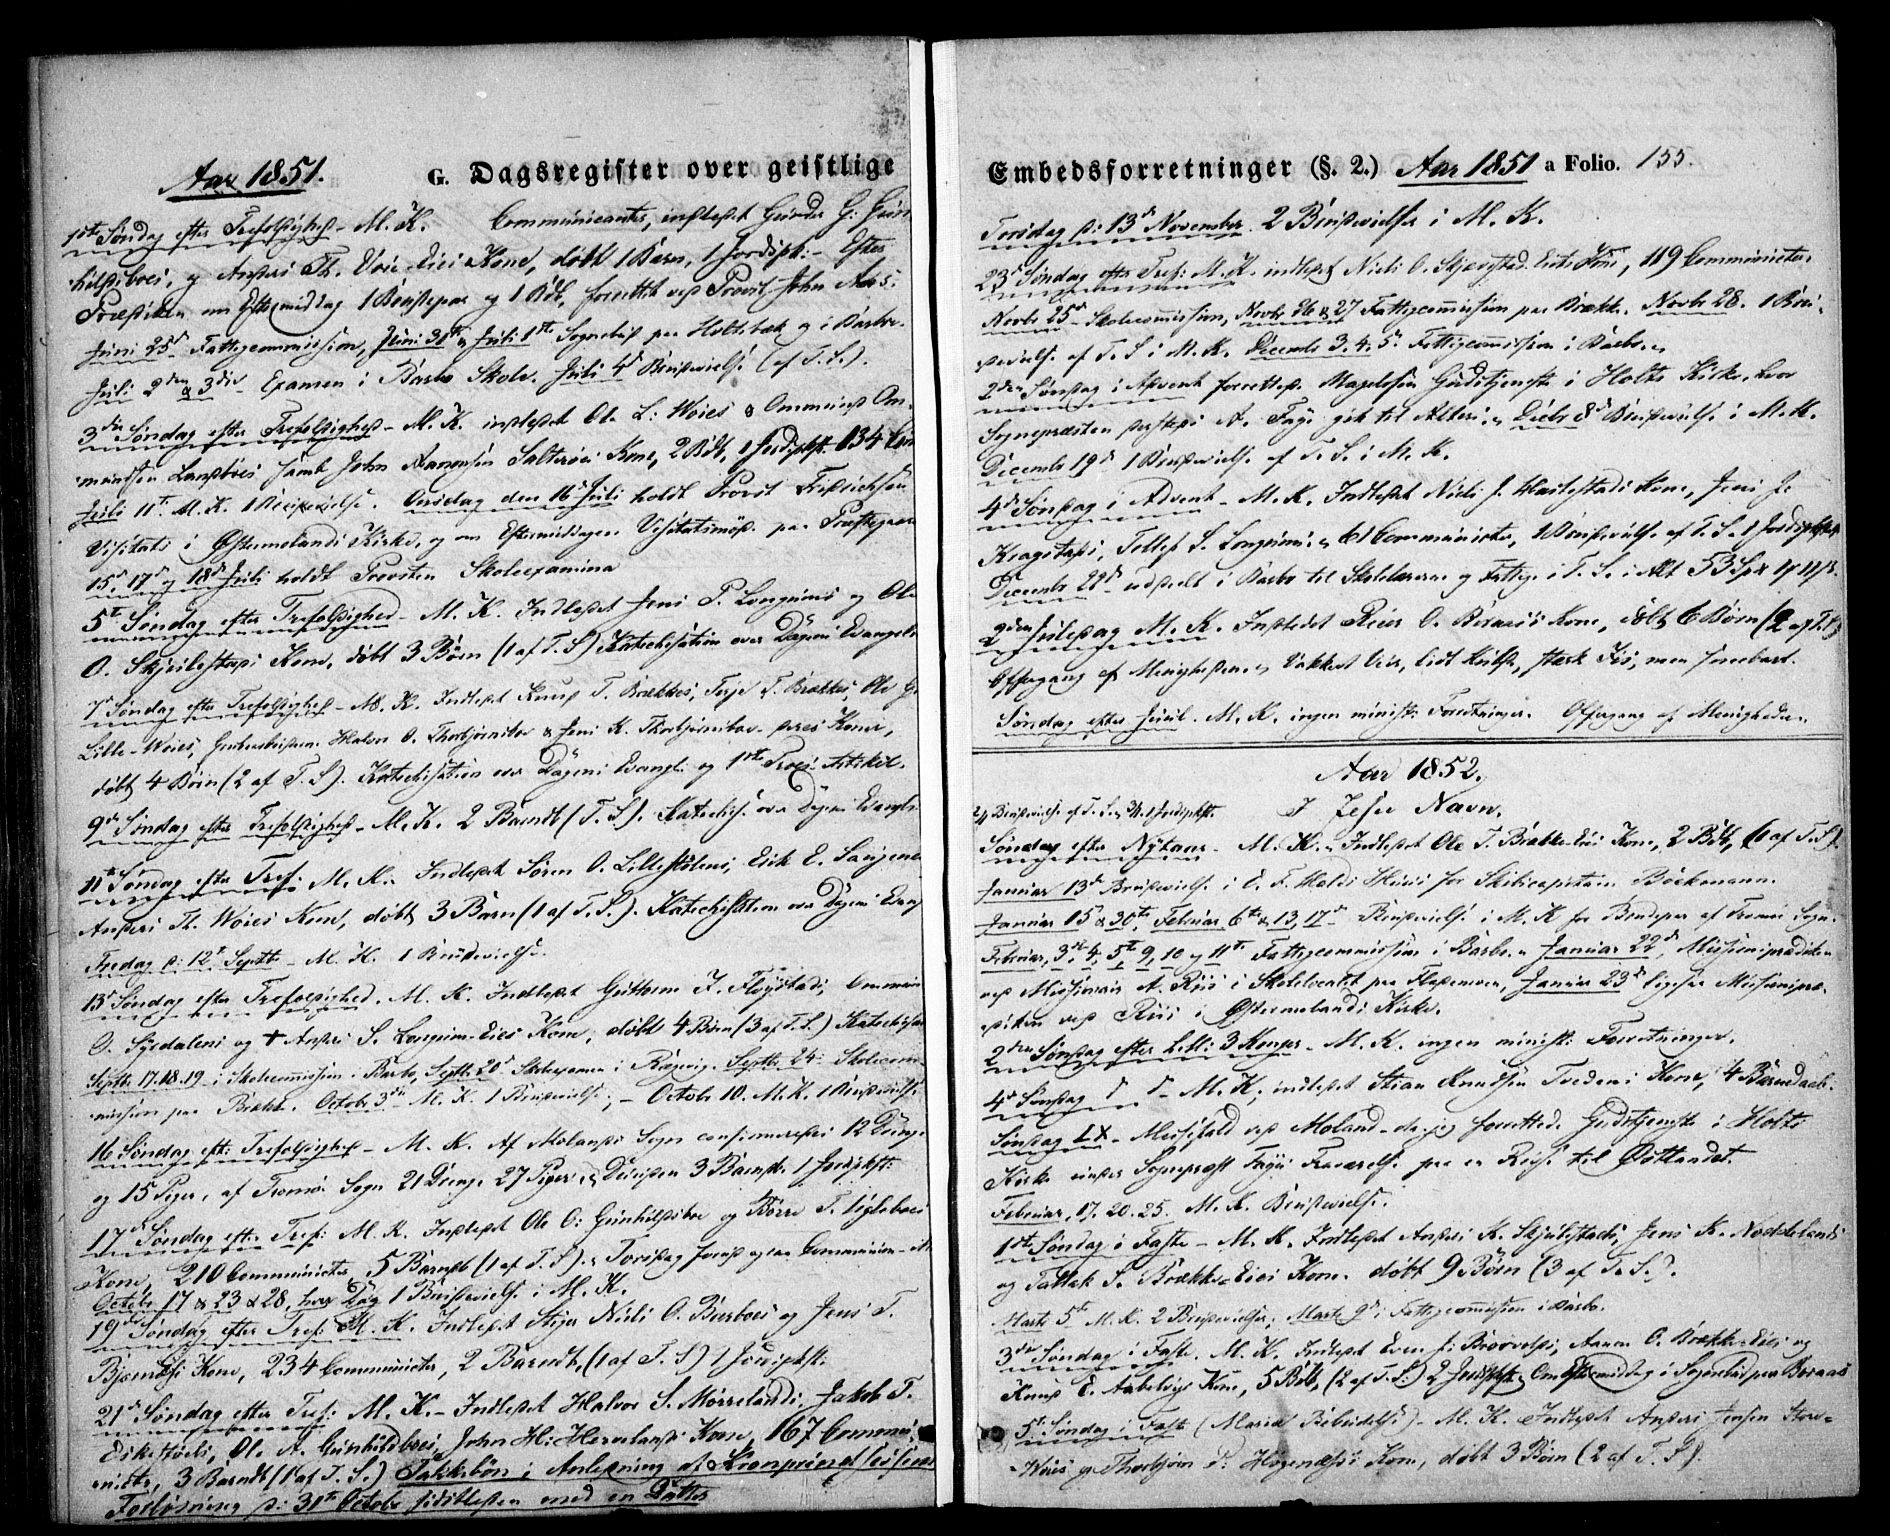 Aar 1851.
G. Dagsregister over geistlige
1ste Søndag efter Trefoldighed - M. K. Communicanter, indledet Gunder G: Gun-
hildsboes, og Anders Th. Voie-Eies Kone, døbt 1 Barn, 1 Jordspk: - Efter
Prædiken om Eftermiddag 1 Brudepar og 1 Bdb, forrettet ved Provst John Aas:
Juni 25de Fattigcommission, Juni 30te & Juli 1ste Sognebud paa Holtebæk og i Barbo.
Juli 2den & 3die Examen i Barbo Skole. Juli 4de Brudevielse (af T. S.).
3die Søndag efter Trefoldighed - M. K. indledet Ole L: Woies & Ommund Om-
mundsen Langboes samt John Aanonsen Salterøes Kone, 2 Bdb, 1 Jordspkt 134 Com
Juli 11te M. K. 1 Brudevielse. Onsdag den 16de Juli holdt Provst Fredrichsen
Visitats i Østermolands Kirke, og om Eftermiddagen Visitatsmøde paa Præstegaar
15de 17de og 18de Juli holdt Provsten Skoleexamina
5te Søndag efter Trefoldighed - M. K. Indledet Jens P. Longums og Ole
O. Skjulestads Kone, døbt 3 Børn (1 af T. S) Katechisation over Dagens Evangeli
7de Søndag efter Trefoldighed - M. K. Indledet Knud T. Brækkes, Terje T. Brækkes, Ole G.
Lille-Woies, Halvor O. Thorbjørnsbo & Jens K. Thorbjørnsboe deres Koner,
døbt 4 Børn (2 af T. S). Katechisation over Dagens Evangl. og 1ste Troes Artikel.
9de Søndag efter Trefoldighed - M. K. 2 Barndb (T. S). Katechis: over Dagens Evangl:
11te Søndag efter Tref: M. K. Indledet Søren O. Lillestølens, Erik E. Langenes
Anders Th. Woies Kone, døbt 3 Børn (1 af T. S.). Katechisation over Dagens Evang
Fredag d: 12te Septbr - M. K. 1 Brudevielse.
13de Søndag efter Trefoldighed. M. K. Indledet Guttorm J. Fløystads, Ommund
O. Syrdalens og + Anders S. Longum-Eies Kone, døbt 4 Børn (3 af T. S.) Katechisa
Septbr 17. 18. 19 - i Skolecommission i Barbo, Septbr 20de Skoleexamen i Rægevig. Septbr 24: Skolecom-
mission paa Brække. Octobr 3die M. K. 1 Brudevielse; - Octobr 10. M. K. 1 Brudevielse
16 Søndag eft: Trefoldighed - M. K. Af Molands Sogn confirmeredes 12 Drenge
og 15 Piger, af Tromø Sogn 21 Drenge 27 Piger; Desuden 3 Barndb. 1 Jordspkt:
17de Søndag efter Tref: M. K. Indledet Ole O: Gunhildsboe og Børre T. Ugleboes
Kone, 210 Communicter 5 Barndb (1 af T. S). Torsdag Communion - M
Octobr 17 & 23 & 28, hver Dag 1 Brudevielse i M. K.
19de Søndag efter Tref: M. K. Indledet Niels O. Bueboes og Jens T.
Bjørnnæs Kone, 234 Communicter, 2 Barndb, (1 af T. S) 1 Jordspkst:
21de Søndag efter Tref: M. K. - Indledet Halvor S. Mørrelands, Jakob T.
Eikestøels, Ole A. Gunhildboes, John H: Herrelands Kone, 167 Commu-
nicter, 3 Barndb (1 af T. S.) Takkebøn i Anledning af Kronprindsessens
Forløsning d: 31te October sidstleden med en Datter
Embedsforretninger (§. 2.) Aar 1851 a Folio. 155.
Torsdag d: 13de November 2 Brudevielser i M. K.
23de Søndag efter Tref: M. K. indledet Niels O. Skjærstad-Eies Kone, 119 Communicter.
Novbr 25de Skolecommission, Novbr 26 & 27 Fattigcommission paa Brække. Novbr 28. 1 Bru-
devielse af T. S i M. K. Decembr 3. 4. 5. Fattigcommission i Barbo.
2den Søndag i Advent forrettede Magelssen Gudstjeneste i Holts Kirke, hvor
Sognepræsten dersteds A. Faye gik til Alters. Decbr 8de Brudevielse i M. K.
Decembr 19de 1 Brudevielse af T. S. i M. K.
4de Søndag i Advent - M. K. Indledet Niels J. Harlestads Kone, Jens J.
Kragstads, Tellef S. Longums. 61 Communicter, 1 Brudevielse af T. S. 1 Jordspkst
Decembr 22de uddeelt i Barbo til Skolelærerne og Fattige i T. S. i Alt 53 Spd
2den Juledag M. K. Indledet Reier O. Kone, døbt 6 Børn (2 af T. S)
Offergang af Menigheden. Vakkert Veir, lidt Kulde, stærk Iis, men snebart.
Søndag efter Juul. M. K. ingen minist: Forretninger. Offergang af Menigheden.
Aar 1852.
I Jesu Navn.
2/1 Brudevielse af T. S. 3/1 1 Jordspkst.
Søndag efter Nytaar - M. K. Indledet Ole T. Brække-Eies Kone, 2 Bdb, (1 af T. S).
Januar 13de Brudevielse i E. F. Huus for Skibscapitain Böckmann.
Januar 15 & 30te, Februar 6te & 13, 17de Brudevielse i M. K for Brudepar af Tromø Sogn.
Februar, 3die 4, 5te 9, 10 og 11te Fattigcommission i Barbo. Januar 22de, Missionsprædiken
ved Missionair A. Riis i Skolelocalet paa Flademoen, Januar 23de ligesaa Missionspræ-
diken ved Riis i Østermolands Kirke.
2den Søndag efter Hell: 3 Konger - M. K. ingen minist: Forretninger.
4de Søndag - M. K. indledet Stian Knudsen Tvedens Kone, 4 Barndaab.
Søndag LX - Messefald ved Moland - da jeg forrettede Gudstjeneste i Holts
Kirke under Sognepræst Fayes Fraværelse paa en Reise til Østlandet.
Februar, 17. 20. 25. M. K. Brudevielse.
1ste Søndag i Faste - M. K. Indledet Anders K. Skjulestads, Jens K. Noddelands
og Tallak S. Brække-Eies Kone. døbt 9 Børn (3 af T. S.).
Marts 5te M. K. 2 Brudevielser; Marts 9de Fattigcommission i Barbo.
3die Søndag i Faste. M. K. Indledet Even J: Aanon O. Brække-Eies og
Knud E. Kone, 5 Bdb, (2 af T. S.) 2 Jordspkst. Om Eftermiddag i Sognebud paa Boraas
5te Søndag i Faste (Mariæ Bebudelse) - M. K. Indledet Anders Jensen Store-
Voies og Thorbjørn P. Høgenæs's Kone, døbt 3 Børn (2 af T. S).